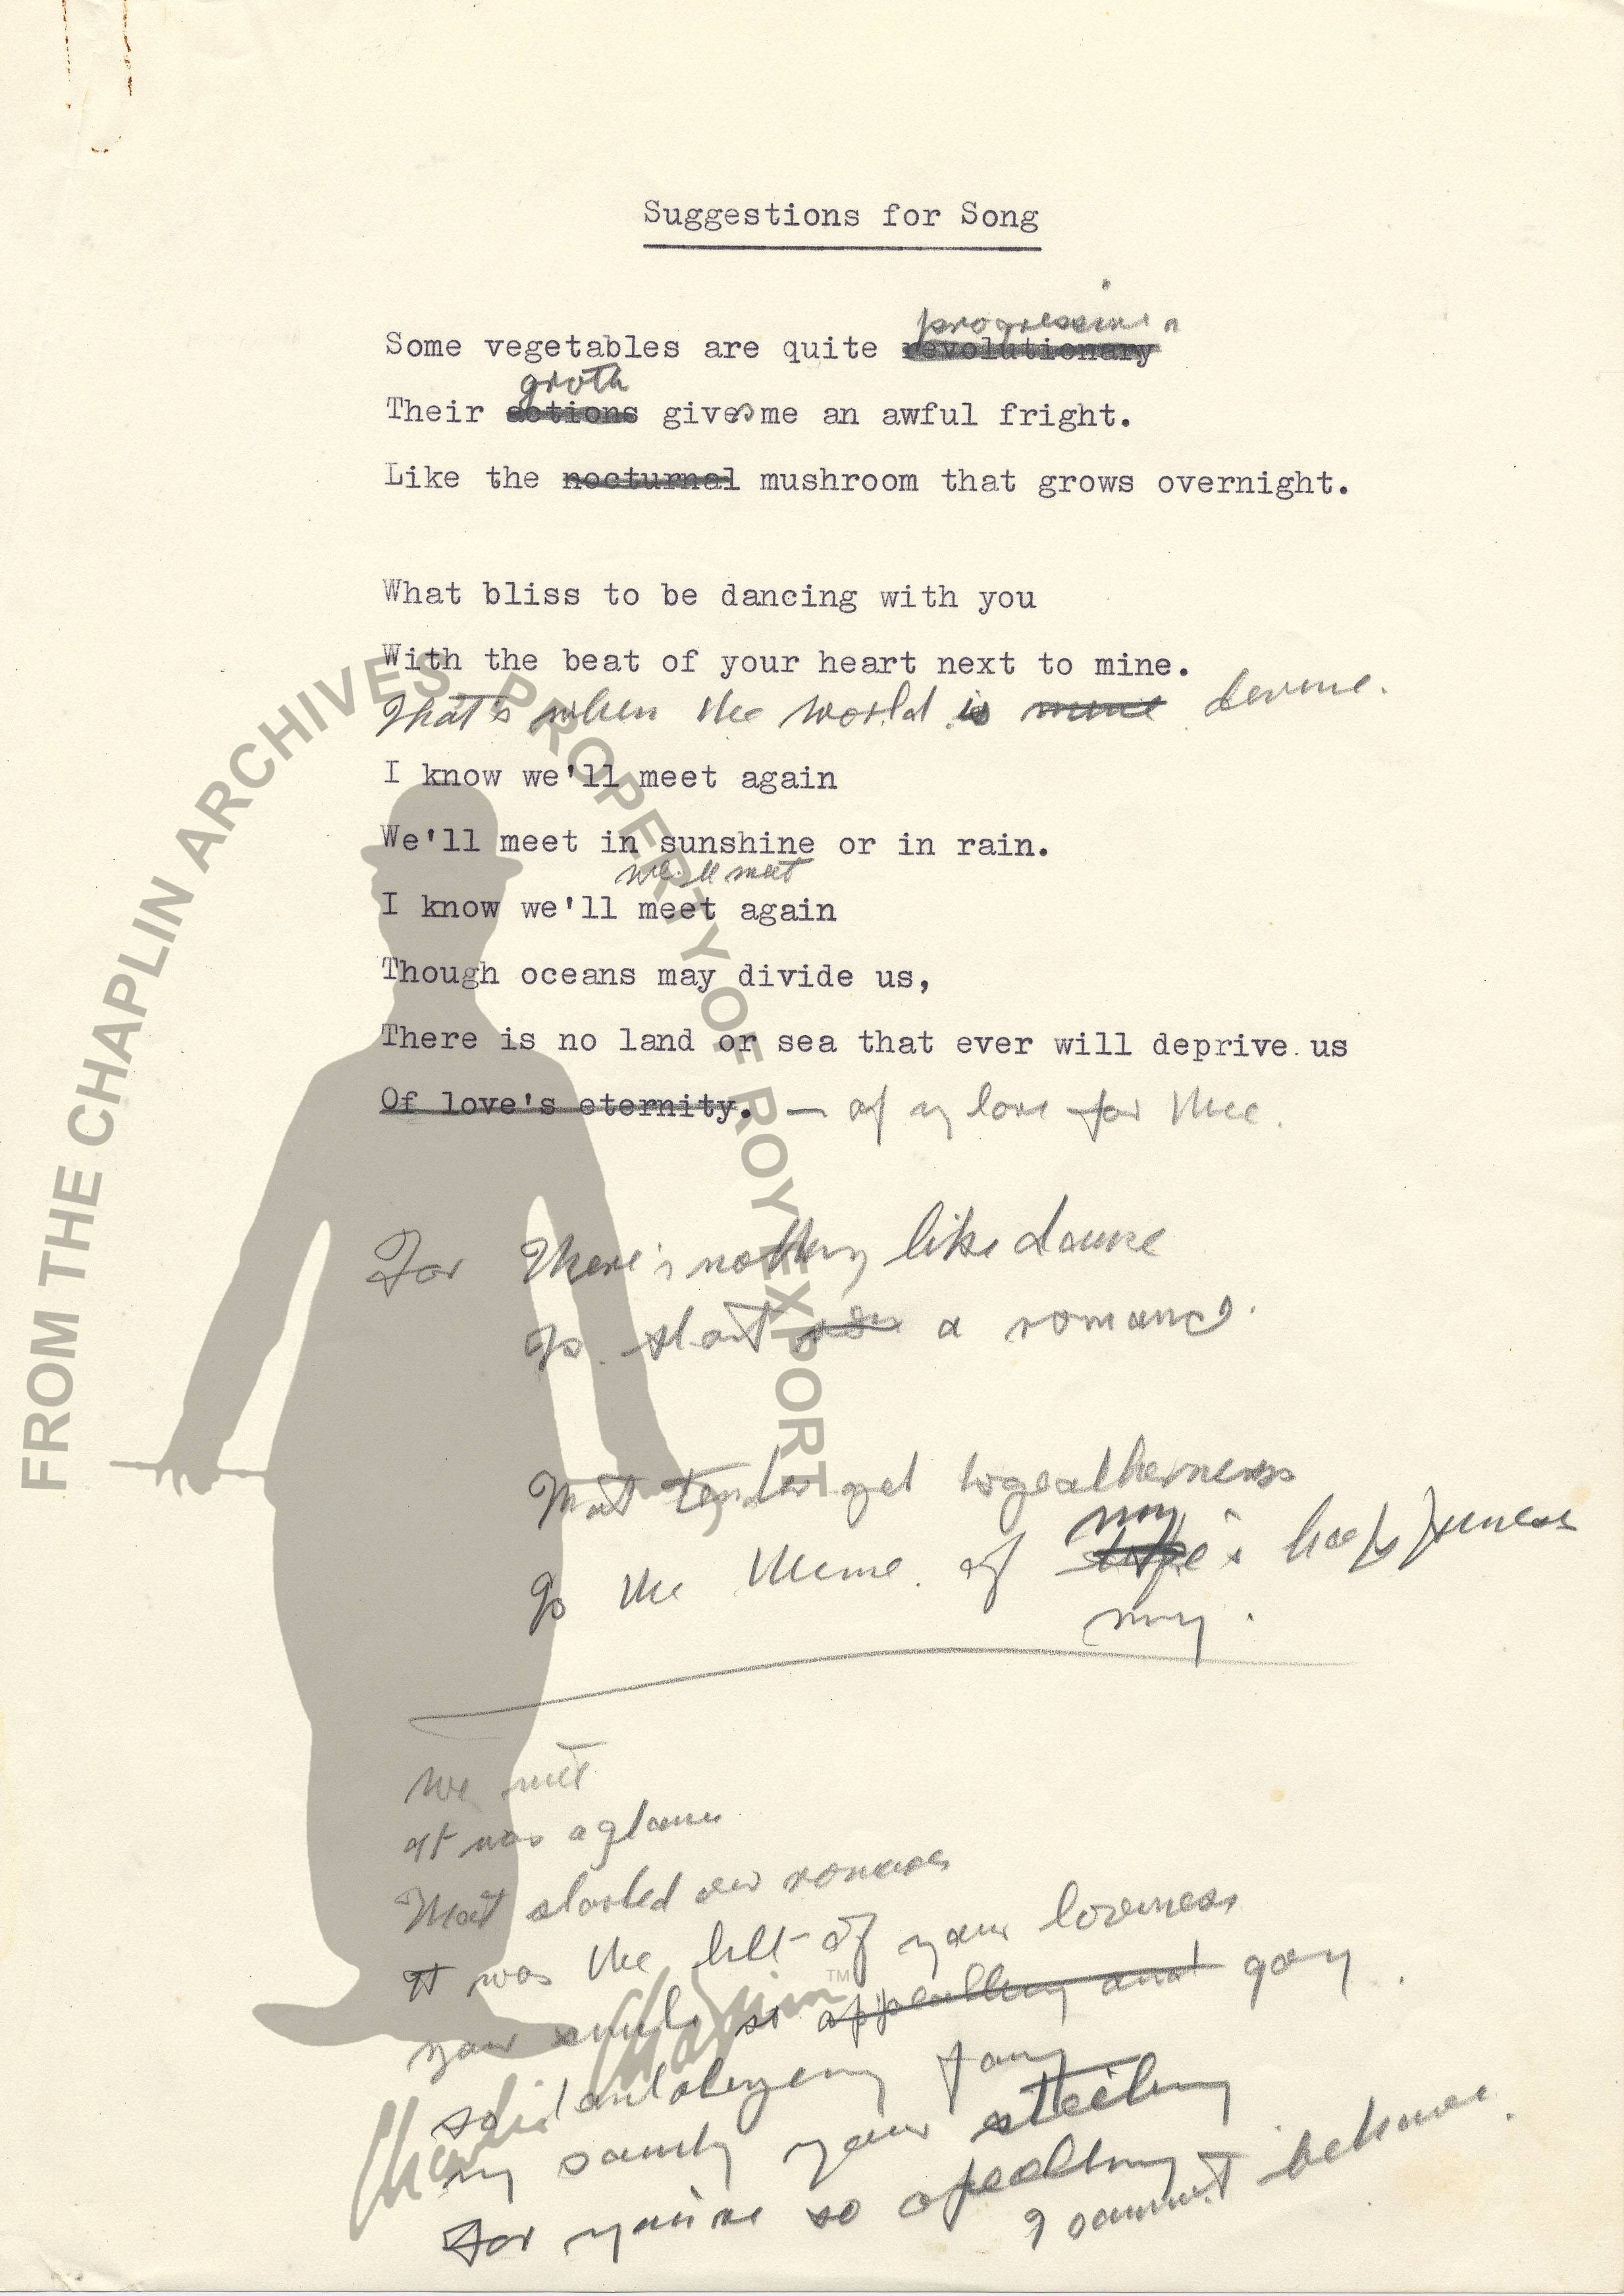 Suggestions for Song
progressive
Some vegetables are quite revolutionary
groth
Their actions gives me an awful fright.
Like the nocturnal mushroom that grows overnight.
What bliss to be dancing with you
With the beat of your heart next to mine.
That's when the world is mine devine.
I know we'll meet again
We'll meet in sunshine or in rain.
we'll meet
I know we'll meet again
Though oceans may divide us,
There is no land or sea that ever will deprive us
Of love's eternity. — of my love for thee.
For There's nothing like dance
To start a romance.
That tender get togeatherness
my
To the theme of happyness
my.
We met
It was a glance
That started our romance
It was the lilt of your loveness
your smile so appealling and gay.
so tantalizing
my sanity your steeling
For you're so apealling
I cannot behave.
FROM THE CHAPLIN ARCHIVES PROPERTY OF ROY EXPORT
Charlie Chaplin TM